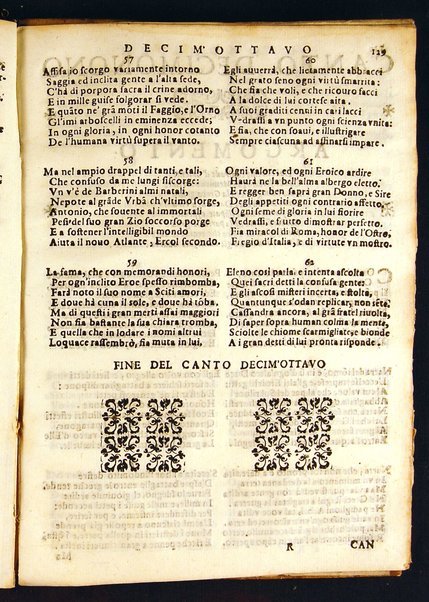 DECIM'OTTAVO 129
57
Affisa io scorgo variamente intorno
Saggia ed inclita gente a l'alta sede,
C'hà di porpora sacra il crine adorno,
E in mille guise folgorar si vede.
E quãto ne' grã moti il Faggio, e l'Orno
Gl'imi arboscelli in eminenza eccede;
In ogni gloria, in ogni honor cotanto
De l'humana virtù supera il vanto.
58
Ma nel ampio drappel di tanti, e tali,
Che confuso da me lungi si scorge:
Vn v'è de Barberini almi natali,
Nepote al grãde Vrbã ch'vltimo sorge,
Antonio, che souente a i immortali
Pesi del suo gran Zio soccorso porge
E a sostener l'intelligibil mondo
Aiuta il nouo Atlante, Ercol secondo.
59
La fama, che con memorandi honori,
Per ogn'inclito Eroe spesso rimbomba,
Farà noto il suo nome a Sciti amori,
E doue hà cuna il sole, e doue hà tõba.
Ma di questi i gran merti assai maggiori
Non fia bastante la sua chiara tromba,
E quella che in lodare i nomi altrui
Loquace rassembrò, fia muta in lui,
60
Egli auuerrà, che lietamente abbracci
Nel grato seno ogni virtù smarrita:
Che fia che voli, e che ricouro facci
A la dolce di lui cortese aita.
A suoi graditi cenni in cari lacci
Vedrassi a vn punto ogni scienza vnita:
E fia, che con soaui, e illustri gare
Sempre ciascuna ad affinarsi impare.
61
Ogni valore, ed ogni Eroico ardire
Haurà ne la bell'alma albergo eletto.
E regger ben saprà gran Donno, e Sire
Degli appetiti ogni contrario affetto,
Ogni seme di gloria in lui fiorire
Vedrassi, e si tutto dimostrar perfetto.
Fia miracol di Roma, honor de l'Ostro,
Fregio d'Italia, e di virtute vn mostro.
62
Eleno così parla: e intenta ascolta
Quei sacri detti la confusa gente:
E gli ascosi misteri incerta, e stolta,
Quantunque s'odan replicar, non sẽte.
Cassandra ancora, al grã fratel riuolta,
Di saper sopra human colma la mente,
Sciolte le chiome scarmigliate, e bionde,
A i gran detti di lui pronta risponde.
FINE DEL CANTO DECIM'OTTAVO
R CAN